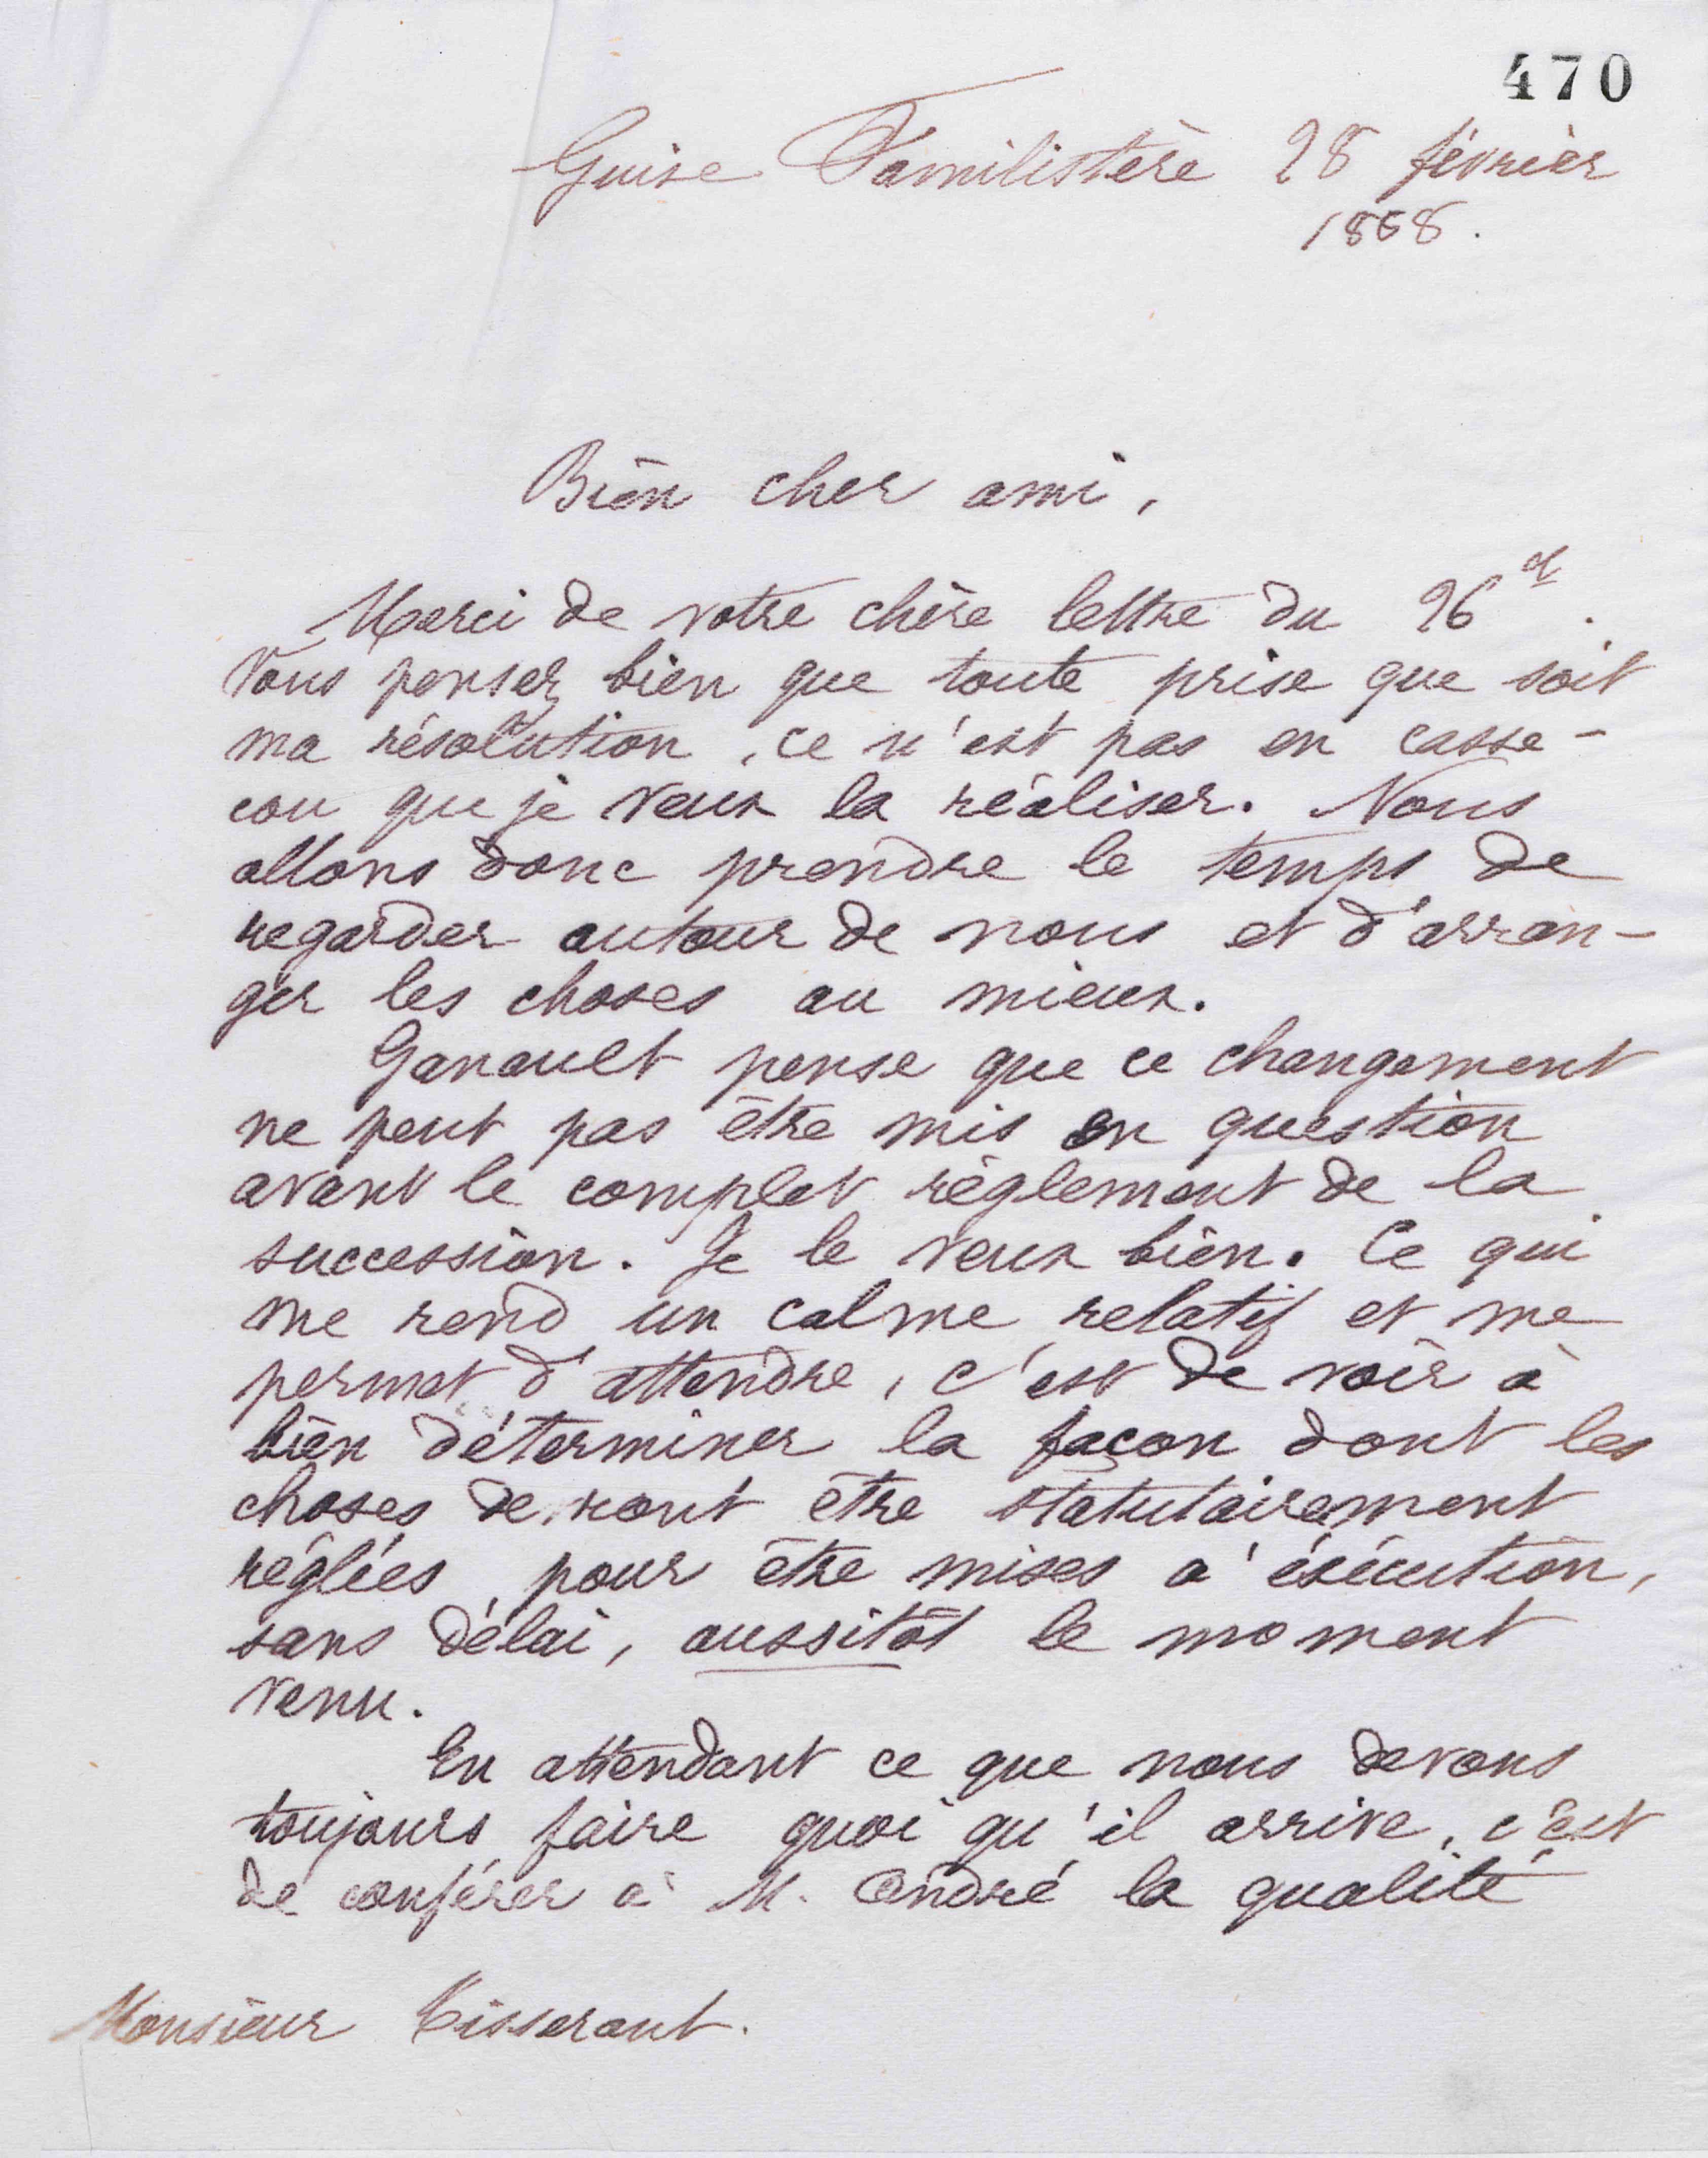 470
Guise Familistère 28 février
1888.
Bien cher ami,
Merci de votre chère lettre du 26 ct.
Vous pensez bien que toute prise que soit
ma résolution, ce n'est pas en casse-
cou que je veux la réaliser. Nous
allons donc prendre le temps de
regarder autour de nous et d'arran-
ger les choses au mieux.
Ganault pense que ce changement
ne peut pas être mis en question
avant le complet règlement de la
succession. Je le veux bien. Ce qui
me rend un calme relatif et me
permet d'attendre, c'est de voir à
bien déterminer la façon dont les
choses devront être statutairement
réglées pour être mises à exécution,
sans délai, aussitôt le moment
venu.
En attendant ce que nous devons
toujours faire quoi qu'il arrive, c'est
de conférer à M. André la qualité
Monsieur Tisserant.